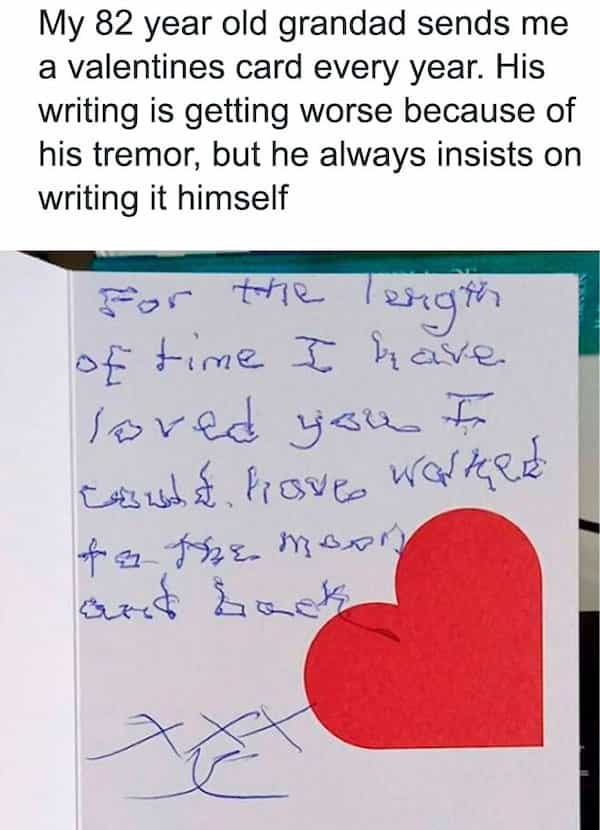 My 82 year old grandad sends me
a valentines card every year. His
writing is getting worse because of
his tremor, but he always insists on
writing it himself
For the length
of time I have
loved you I
could have walked
to the moon
and back
xxx